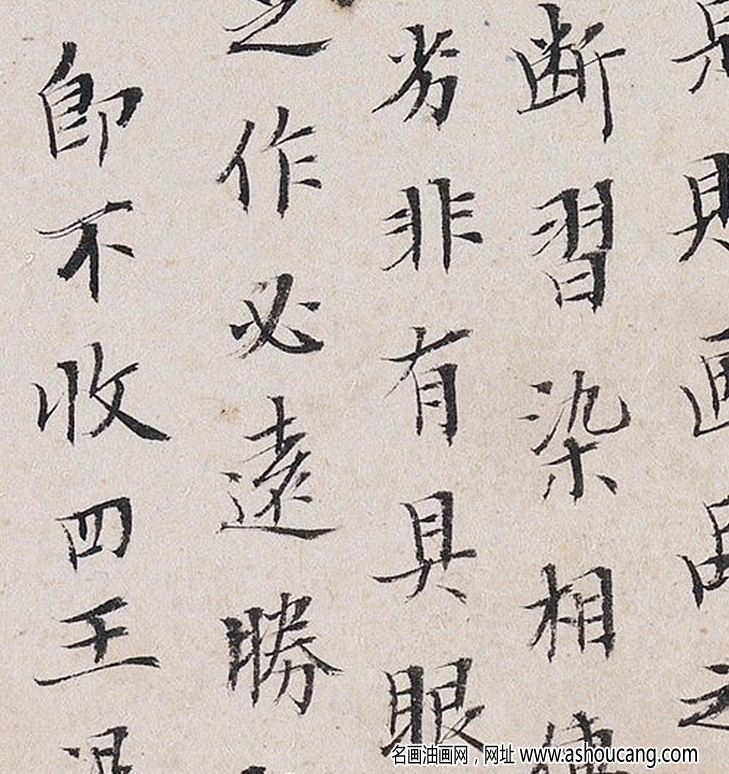 画之
断習染相
劣非有具眼
之作必遠勝
即不收四王
名画油画网，网址 www.ashoucang.com